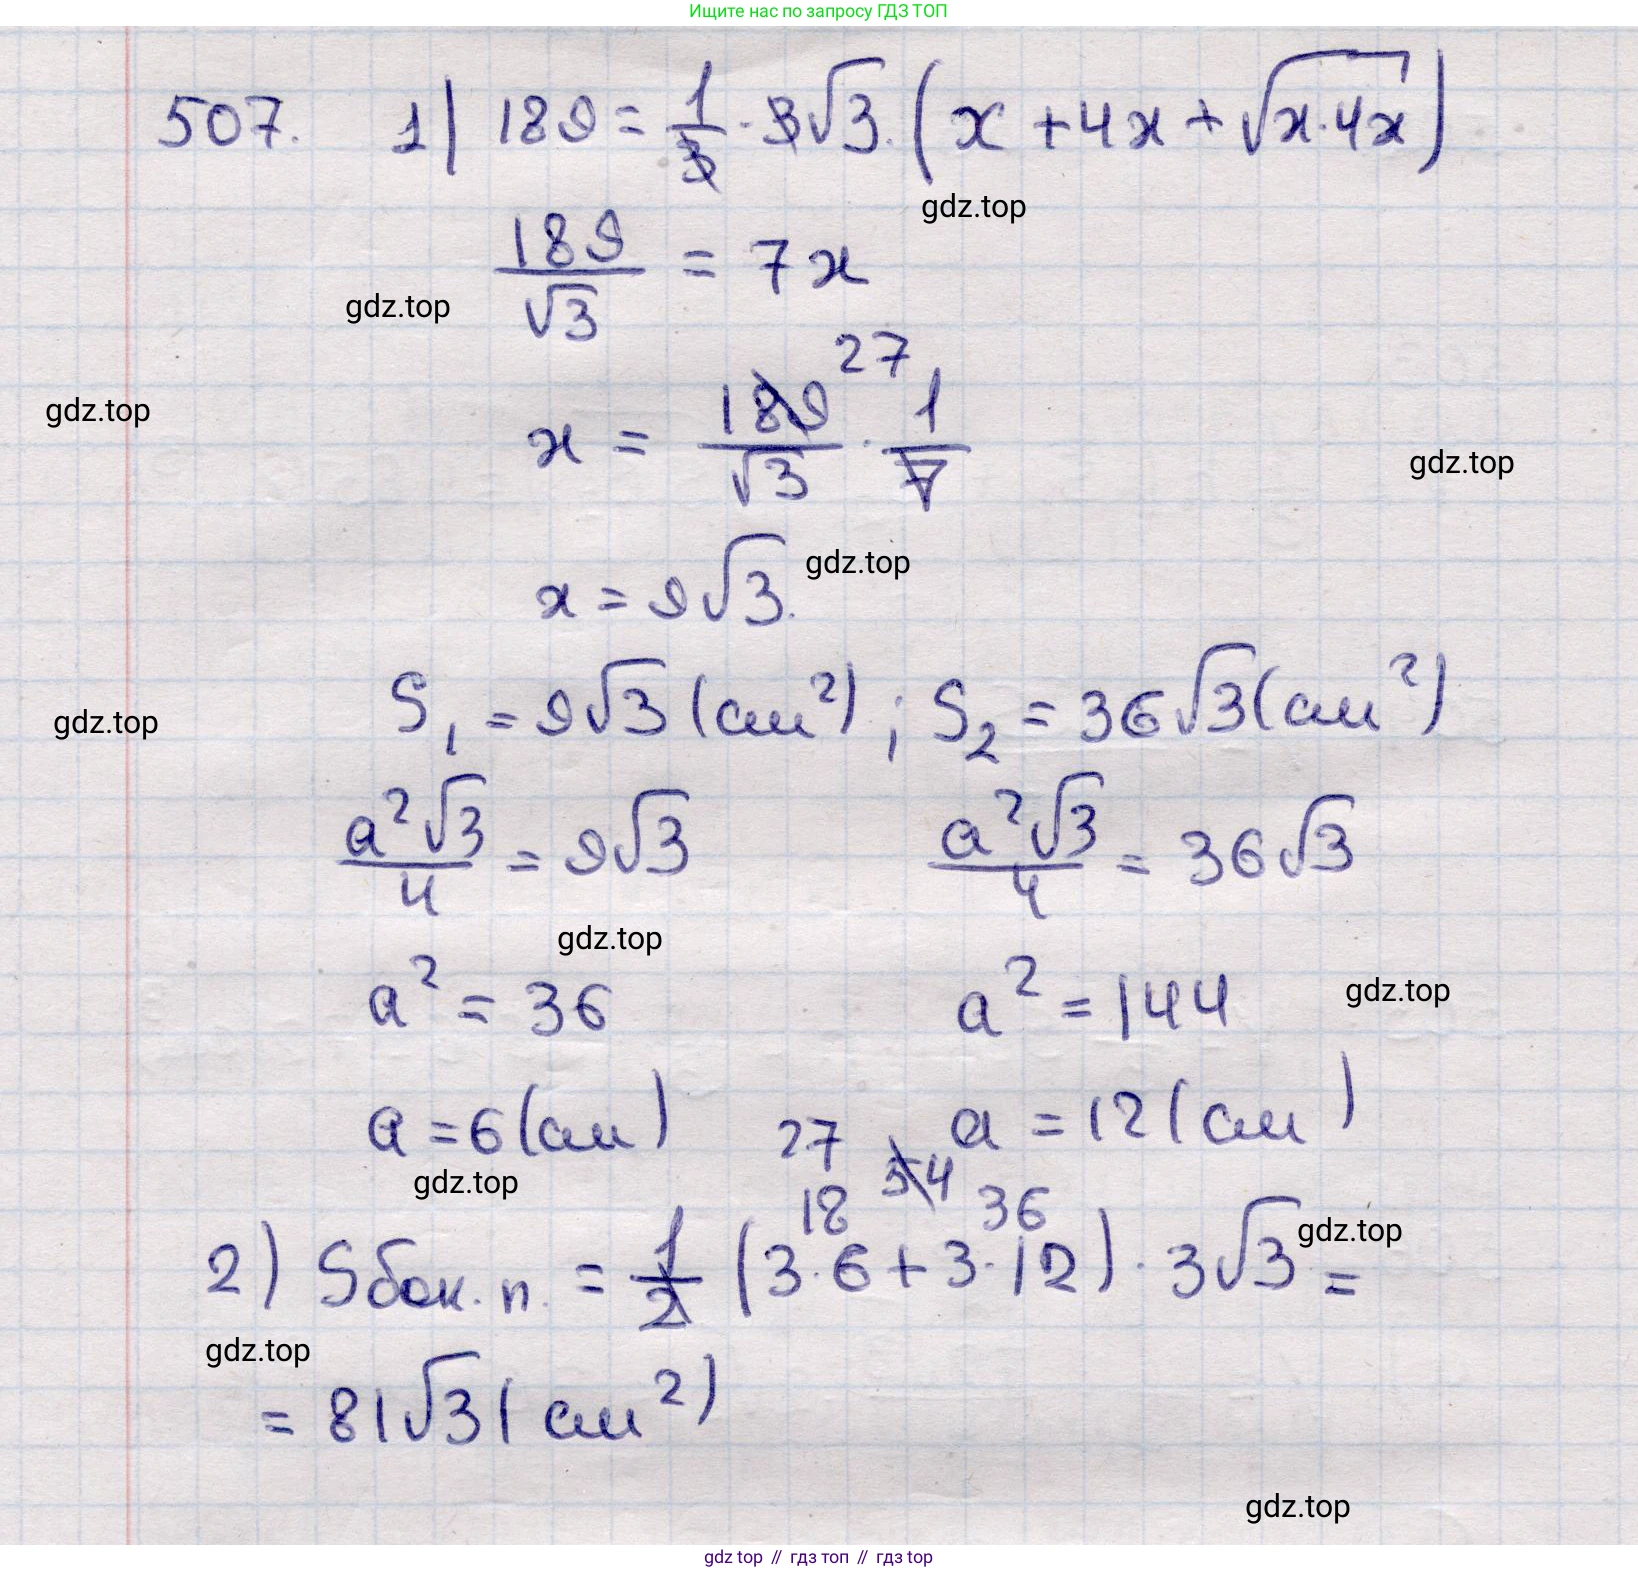 Ищите нас по запросу ГДЗ ТОП
507. 1) 189 = 1/3 · 3√3 · (x + 4x + √(x·4x))
gdz.top
189/√3 = 7x
gdz.top
27
gdz.top
x = 189/√3 · 1/7
gdz.top
x = 9√3.
gdz.top
S₁ = 9√3 (см²) ; S₂ = 36√3 (см²)
gdz.top
a²√3/4 = 9√3 a²√3/4 = 36√3
gdz.top
a² = 36 a² = 144
gdz.top
a = 6 (см) a = 12 (см)
27
54
gdz.top
18 36
2) Sбок. п. = 1/2 (3·6 + 3·12) · 3√3 =
gdz.top
gdz.top
= 81√3 (см²)
gdz.top
gdz top // гдз топ // гдз top